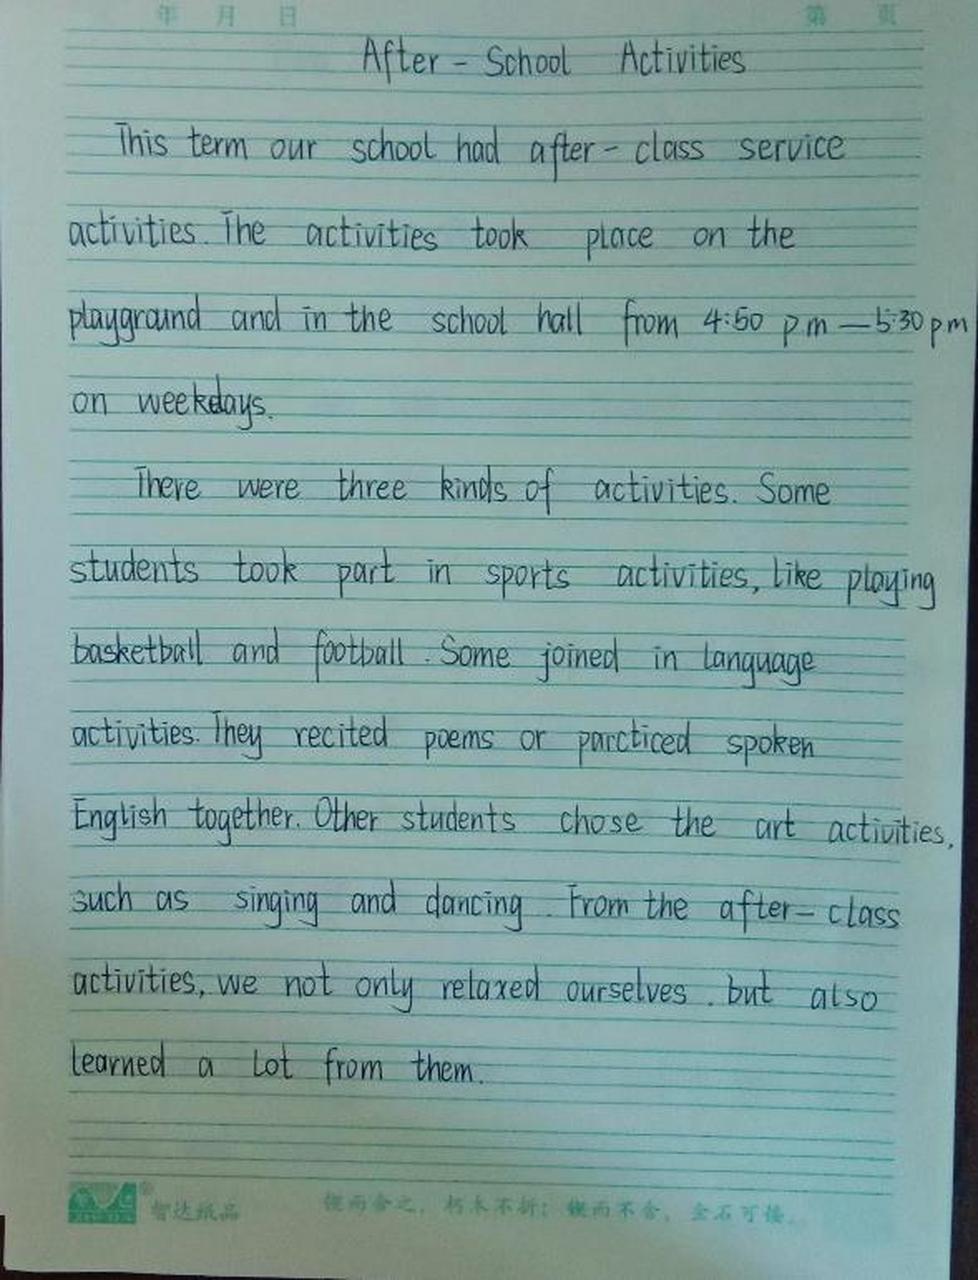 年 月 日 第 页
After - School Activities
This term our school had after - class service
activities. The activities took place on the
playground and in the school hall from 4:50 pm — 5:30 pm
on weekdays.
There were three kinds of activities. Some
students took part in sports activities, like playing
basketball and football. Some joined in language
activities. They recited poems or parcticed spoken
English together. Other students chose the art activities,
such as singing and dancing. From the after - class
activities, we not only relaxed ourselves. but also
learned a lot from them.
智达纸品 锲而舍之，朽木不折；锲而不舍，金石可镂。